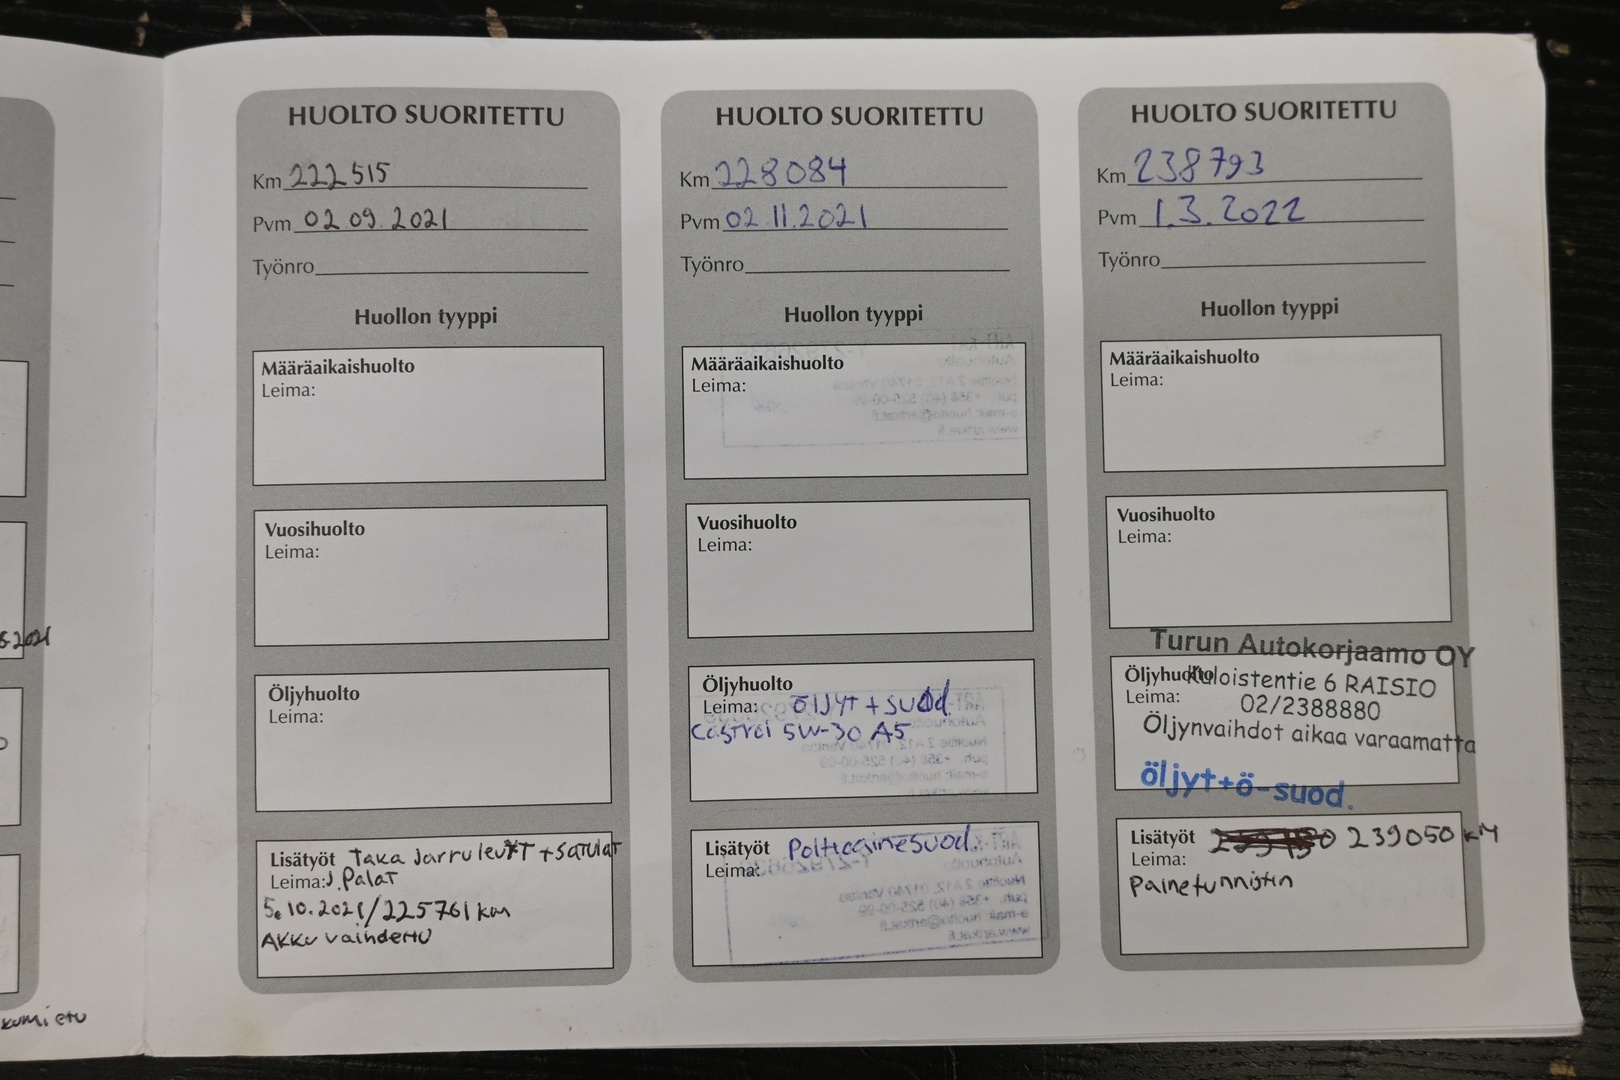 6.2021
kumi etu
HUOLTO SUORITETTU
Km 222 515
Pvm 02.09.2021
Työnro
Huollon tyyppi
Määräaikaishuolto
Leima:
Vuosihuolto
Leima:
Öljyhuolto
Leima:
Lisätyöt Taka Jarrulevyt + satulat
Leima: J. Palat
5.10.2021/225761 km
Akku vaihdettu
HUOLTO SUORITETTU
Km 228084
Pvm 02.11.2021
Työnro
Huollon tyyppi
Määräaikaishuolto
Leima:
Vuosihuolto
Leima:
Öljyhuolto
Leima: öljyt + suod.
Castrol 5W-30 A5
Lisätyöt Polttoainesuod.
Leima:
HUOLTO SUORITETTU
Km 238793
Pvm 1.3.2022
Työnro
Huollon tyyppi
Määräaikaishuolto
Leima:
Vuosihuolto
Leima:
Turun Autokorjaamo OY
Öljyhuolto Kuloistentie 6 RAISIO
Leima: 02/2388880
Öljynvaihdot aikaa varaamatta
öljyt+ö-suod.
Lisätyöt 239050 KM
Leima:
Painetunnistin